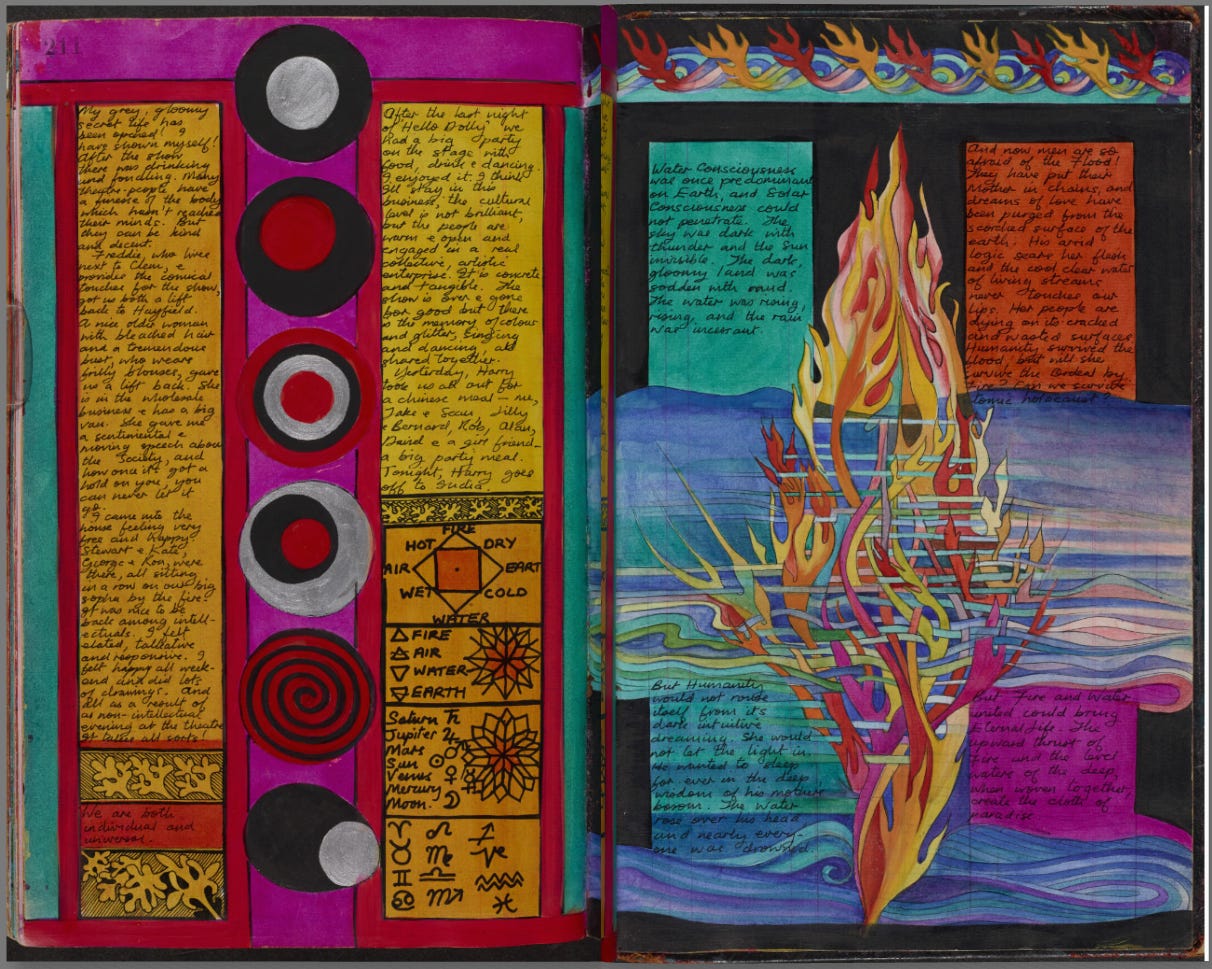 211
My grey, gloomy
secret life has
been opened! I
have shown myself!
After the show
there was drinking
and fondling. Many
theatre-people have
a finesse of the body
which hasn't reached
their minds. But
they can be kind
and decent.
Freddie, who lives
next to Clem, &
provides the comical
touches for the show,
got us both a lift
back to Hayfield.
A nice older woman
with bleached hair
and a tremendous
bust, who wears
frilly blouses, gave
us a lift back. She
is in the wholesale
business & has a big
van. She gave me
a sentimental &
moving speech about
the Society, and
how once it's got a
hold on you, you
can never let it
go.
I came into the
house feeling very
free and happy.
Stewart & Kate,
George & Ron, were
there, all sitting
in a row on our big
sopha by the fire.
It was nice to be
back among intell-
ectuals. I felt
elated, talkative
and responsive. I
felt happy all week-
end and did lots
of drawings. And
all as a result of
a non-intellectual
evening at the theatre
It takes all sorts!
We are both
individual and
universal.
After the last night
of 'Hello Dolly' we
had a big party
on the stage with
food, drink & dancing.
I enjoyed it. I think
I'll stay in this
business; the cultural
level is not brilliant,
but the people are
warm & open and
engaged in a real
collective, artistic
enterprise. It is concrete
and tangible. The
show is over & gone
for good but there
is the memory of colour
and glitter, singing
and dancing, all
shared together.
Yesterday, Harry
took us all out for
a chinese meal – me,
Jake & Sean, Lilly
& Bernard, Rob, Alan,
David & a girl friend –
a big party meal.
Tonight, Harry goes
off to India.
FIRE
HOT DRY
AIR EARTH
WET COLD
WATER
△ FIRE
AIR
▽ WATER
EARTH
Saturn ♄
Jupiter ♃
Mars ♂
Sun ☉
Venus ♀
Mercury ☿
Moon. ☽
♈ ♌ ♐
♉ ♍ ♑
♊ ♎ ♒
♋ ♏ ♓
Water Consciousness
was once predominant
on Earth, and Solar
Consciousness could
not penetrate. The
sky was dark with
thunder and the Sun
invisible. The dark,
gloomy land was
sodden with mud.
The water was rising,
rising, and the rain
was incessant.
But Humanity
would not rouse
itself from it's
dark intuitive
dreaming. She would
not let the light in.
He wanted to sleep
for ever in the deep
wisdom of his mothers
bosom. The water
rose over his head
and nearly every-
one was drowned.
And now men are so
afraid of the Flood!
They have put their
Mother in chains, and
dreams of love have
been purged from the
scorched surface of the
earth. His arid
logic sears her flesh
and the cool clear water
of living streams
never touches our
lips. Her people are
dying on its cracked
and wasted surfaces
Humanity survived the
flood, but will she
survive the Ordeal by
Fire? Can we survive
atomic holocaust?
But Fire and Water
united could bring
Eternal Life. The
upward thrust of
Fire and the level
waters of the deep,
when woven together,
create the cloth of
paradise